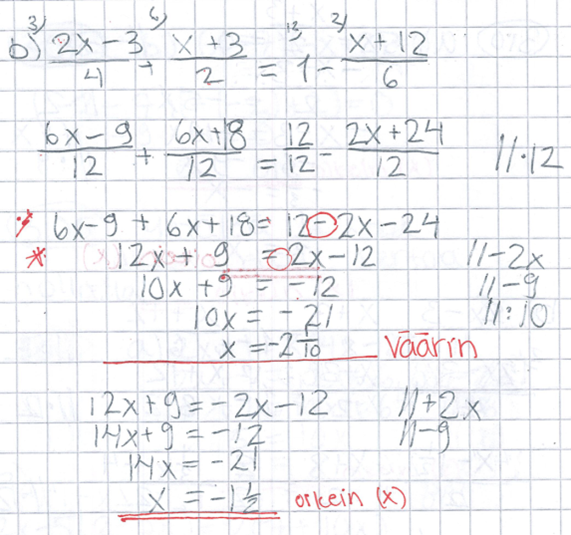 b) 3) (2x-3)/4 + 6) (x+3)/2 = 12) 1 - 2) (x+12)/6
(6x-9)/12 + (6x+18)/12 = 12/12 - (2x+24)/12 ||·12
6x-9 + 6x+18= 12-2x-24
* 12x+ 9 = 2x-12 ||-2x
10x+9 = -12 ||-9
10x = -21 ||:10
x =-2 1/10 Väärin
12x+9=-2x-12 ||+2x
14x+9=-12 ||-9
14x=-21
x =-1 1/2 oikein (x)